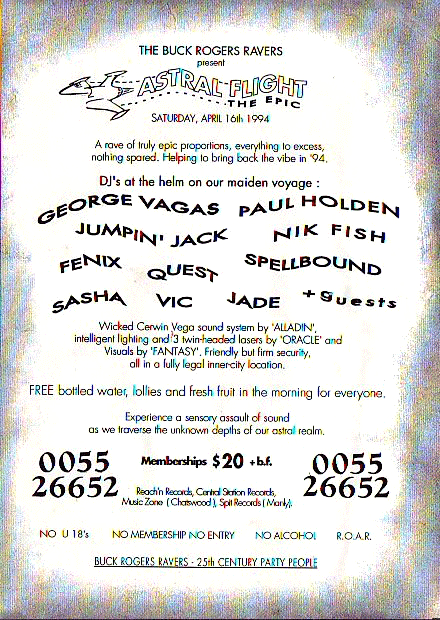 THE BUCK ROGERS RAVERS
present
ASTRAL FLIGHT
THE EPIC
SATURDAY, APRIL 16th 1994
A rave of truly epic proportions, everything to excess,
nothing spared. Helping to bring back the vibe in '94.
DJ's at the helm on our maiden voyage :
GEORGE VAGAS PAUL HOLDEN
JUMPIN' JACK NIK FISH
FENIX QUEST SPELLBOUND
SASHA VIC JADE + Guests
Wicked Cerwin Vega sound system by 'ALLADIN',
intelligent lighting and 3 twin-headed lasers by 'ORACLE' and
Visuals by 'FANTASY'. Friendly but firm security,
all in a fully legal inner-city location.
FREE bottled water, lollies and fresh fruit in the morning for everyone.
Experience a sensory assault of sound
as we traverse the unknown depths of our astral realm.
0055
26652
Memberships $20 +b.f.
Reach'n Records, Central Station Records,
Music Zone ( Chatswood ), Spit Records ( Manly).
0055
26652
NO U 18's NO MEMBERSHIP NO ENTRY NO ALCOHOL R.O.A.R.
BUCK ROGERS RAVERS - 25th CENTURY PARTY PEOPLE